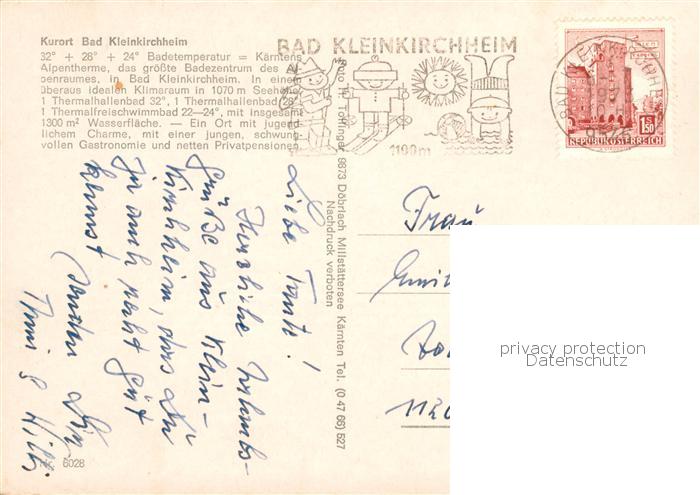 Kurort Bad Kleinkirchheim
32° + 28° + 24° Badetemperatur = Kärntens
Alpentherme, das größte Badezentrum des Al-
penraumes, in Bad Kleinkirchheim. In einem
überaus idealen Klimaraum in 1070 m Seehöhe
1 Thermalhallenbad 32°, 1 Thermalhallenbad (28°
1 Thermalfreischwimmbad 22—24°, mit insgesamt
1300 m² Wasserfläche. — Ein Ort mit jugend-
lichem Charme, mit einer jungen, schwung-
vollen Gastronomie und netten Privatpensionen.
BAD KLEINKIRCHHEIM
1100m
REPUBLIK ÖSTERREICH
1S50
Foto W. Tollinger 9873 Döbriach Millstättersee Kärnten Tel. (0 47 66) 527
Nachdruck verboten
Liebe Tante!
Herzliche Urlaubs-
grüße aus Klein-
kirchheim, das Du
ja auch recht gut
kennst
senden Dir
& Willi
Frau
Nr. 6028
privacy protection
Datenschutz